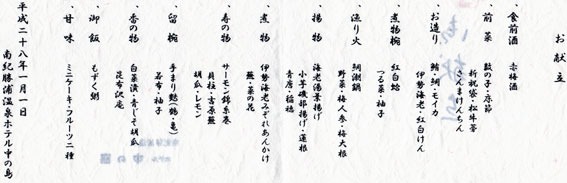 お献立
食前酒、赤梅酒
前菜、数の子・赤筋
祈祝袋・松牛蒡
さんまけんちん
お造り、鮪・鯛・モイカ
伊勢海老・紅白けん
煮物椀、紅白蛤
つる菜・柚子
流り火、鯛潮鍋
野菜・梅人参・梅大根
揚物、海老湯葉揚げ
小芋磯部揚げ・蓮根
青唐・稲穂
煮物、伊勢海老みぞれあんかけ
蕪・菜の花
寿の物、サーモン錦糸巻
貝柱・吉原蕪
胡瓜・レモン
留椀、手まり麩(鶴・亀)
若布・柚子
香の物、白菜漬・青じそ胡瓜
昆布沢庵
御飯、もずく粥
甘味、ミニケーキ・フルーツ二種
平成二十八年一月一日
南紀勝浦温泉ホテル中の島